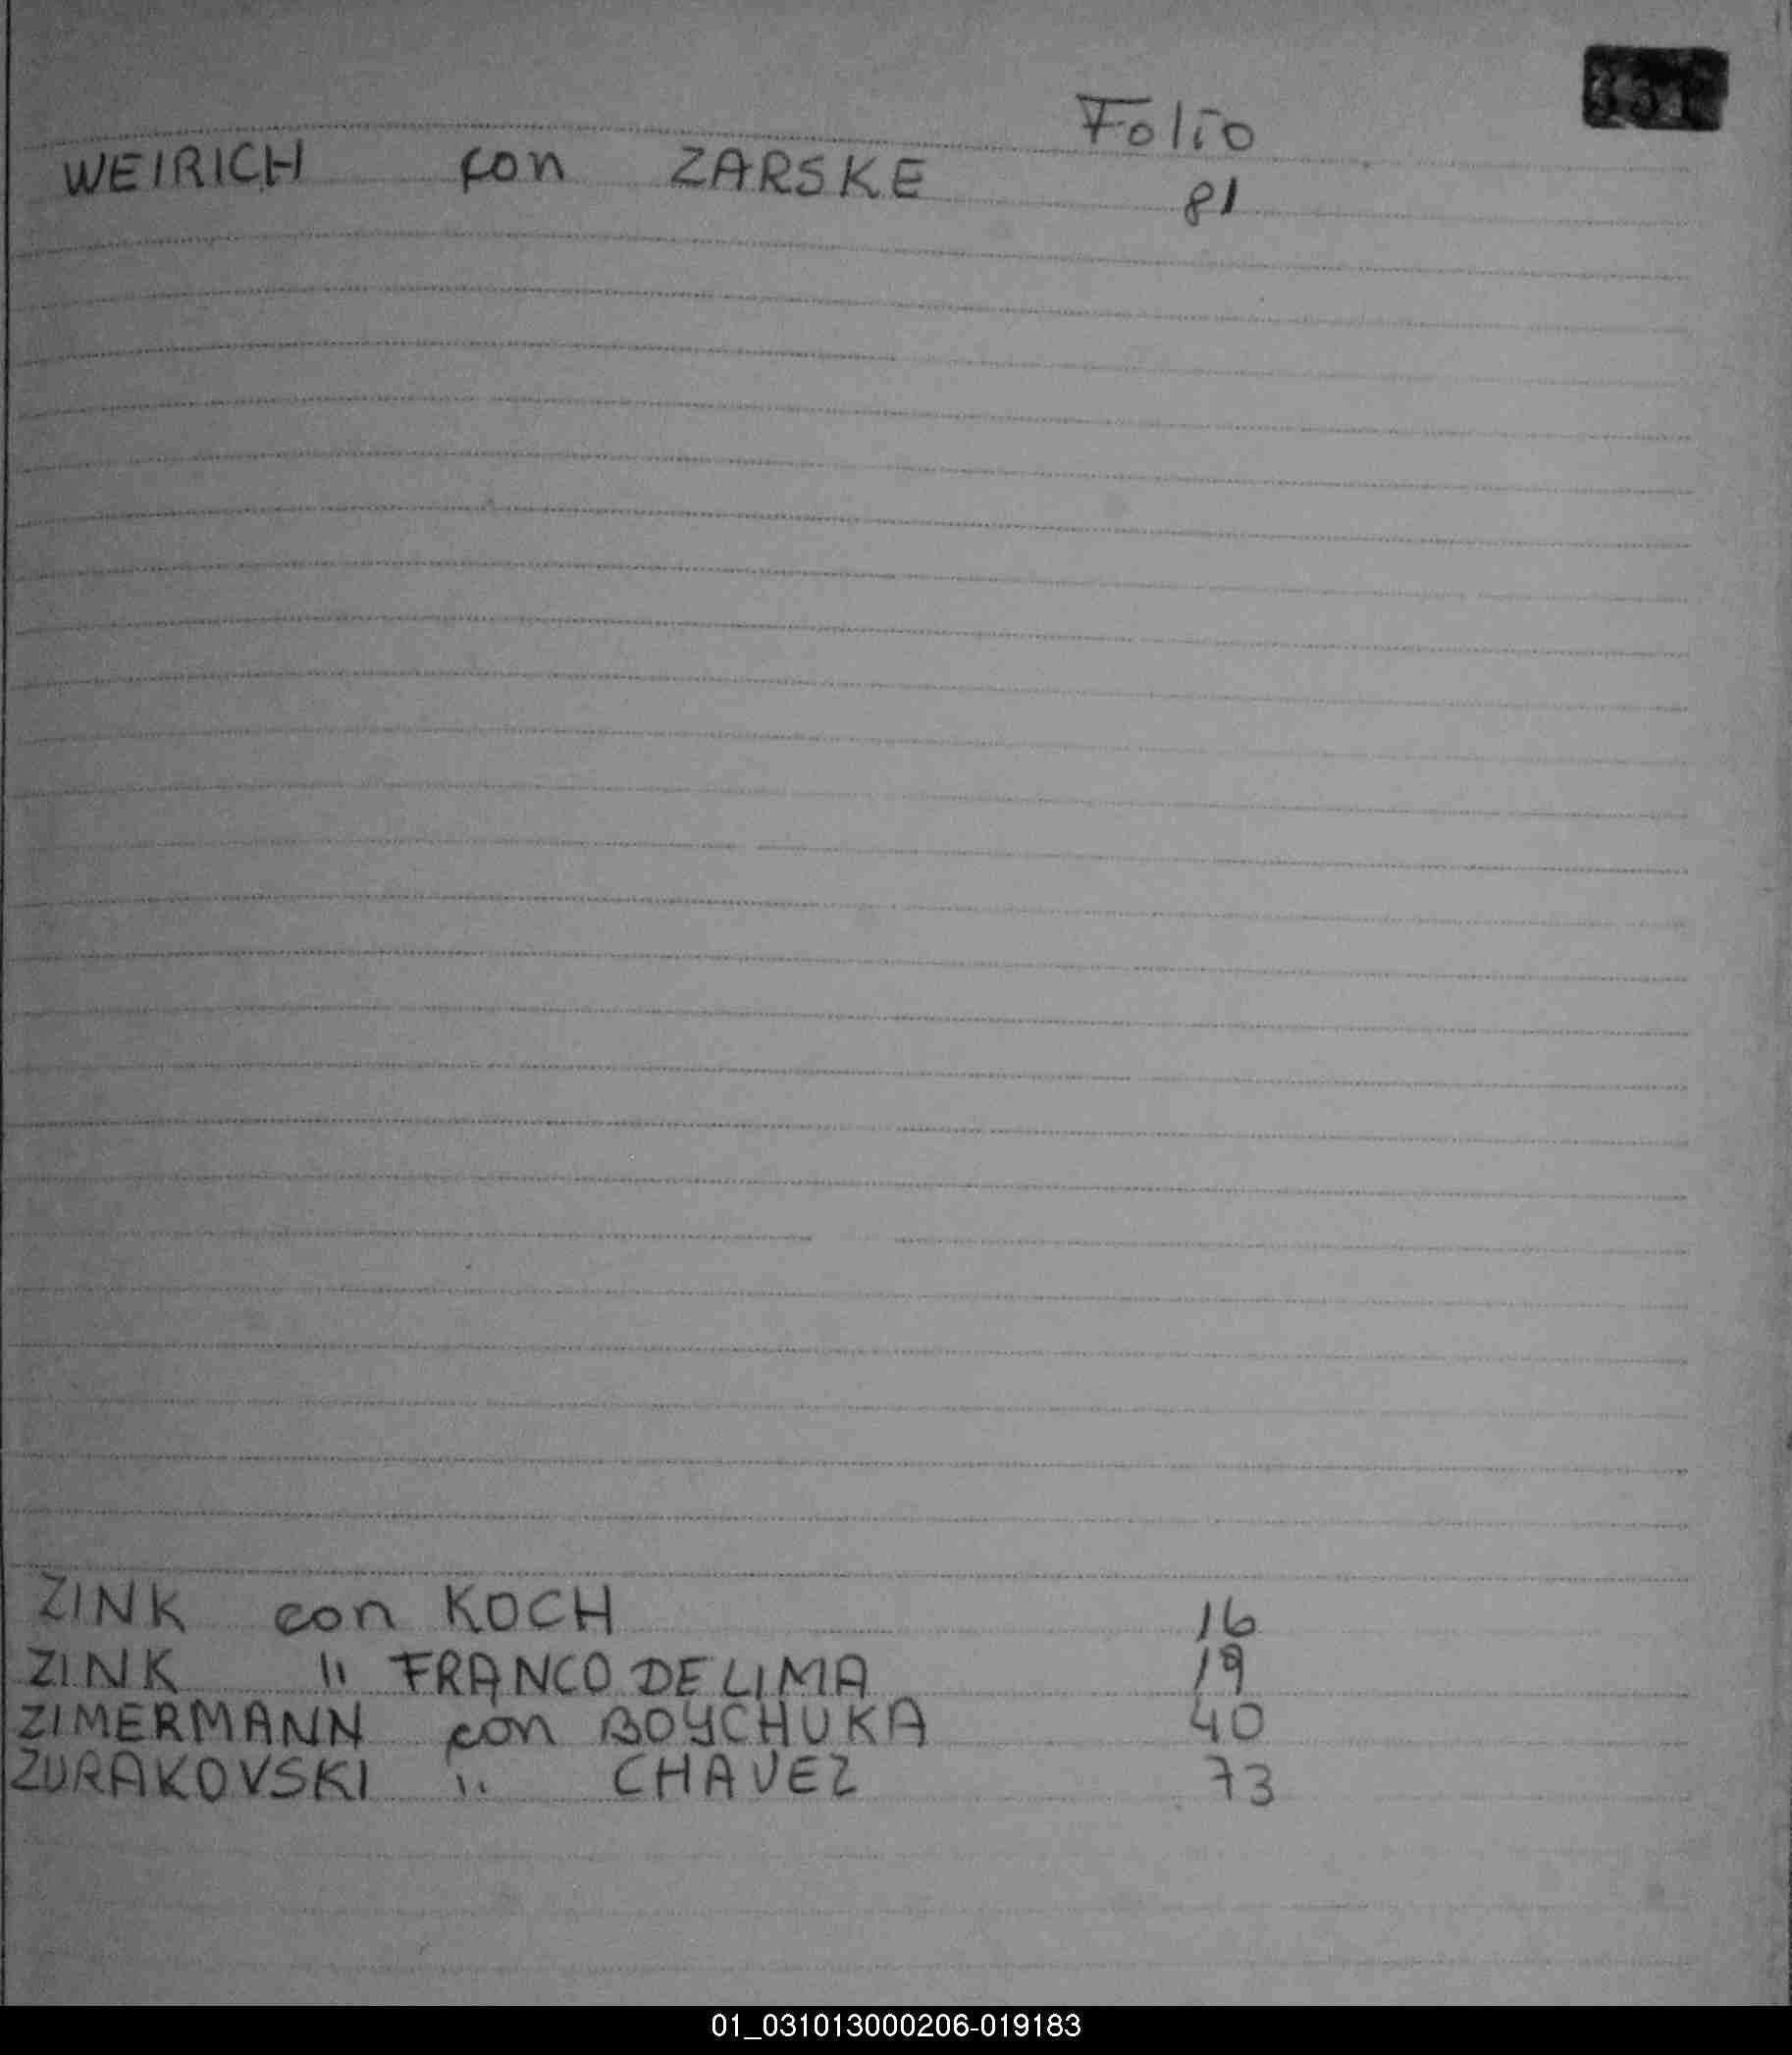 Folio
WEIRICH con ZARSKE 81
ZINK con KOCH 16
ZINK " FRANCO DE LIMA 19
ZIMERMANN con BOYCHUKA 40
ZURAKOVSKI " CHAVEZ 73
01_031013000206-019183